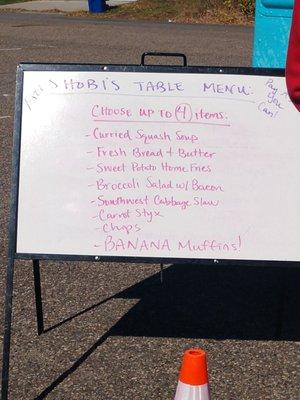 SHOBI'S TABLE MENU:
Pay
You
Can!
CHOOSE UP TO (4) items:
- Curried Squash Soup
- Fresh Bread + Butter
- Sweet Potato Home Fries
- Broccoli Salad w/ Bacon
- Southwest Cabbage Slaw
- Carrot Styx
- Chips
- BANANA Muffins!